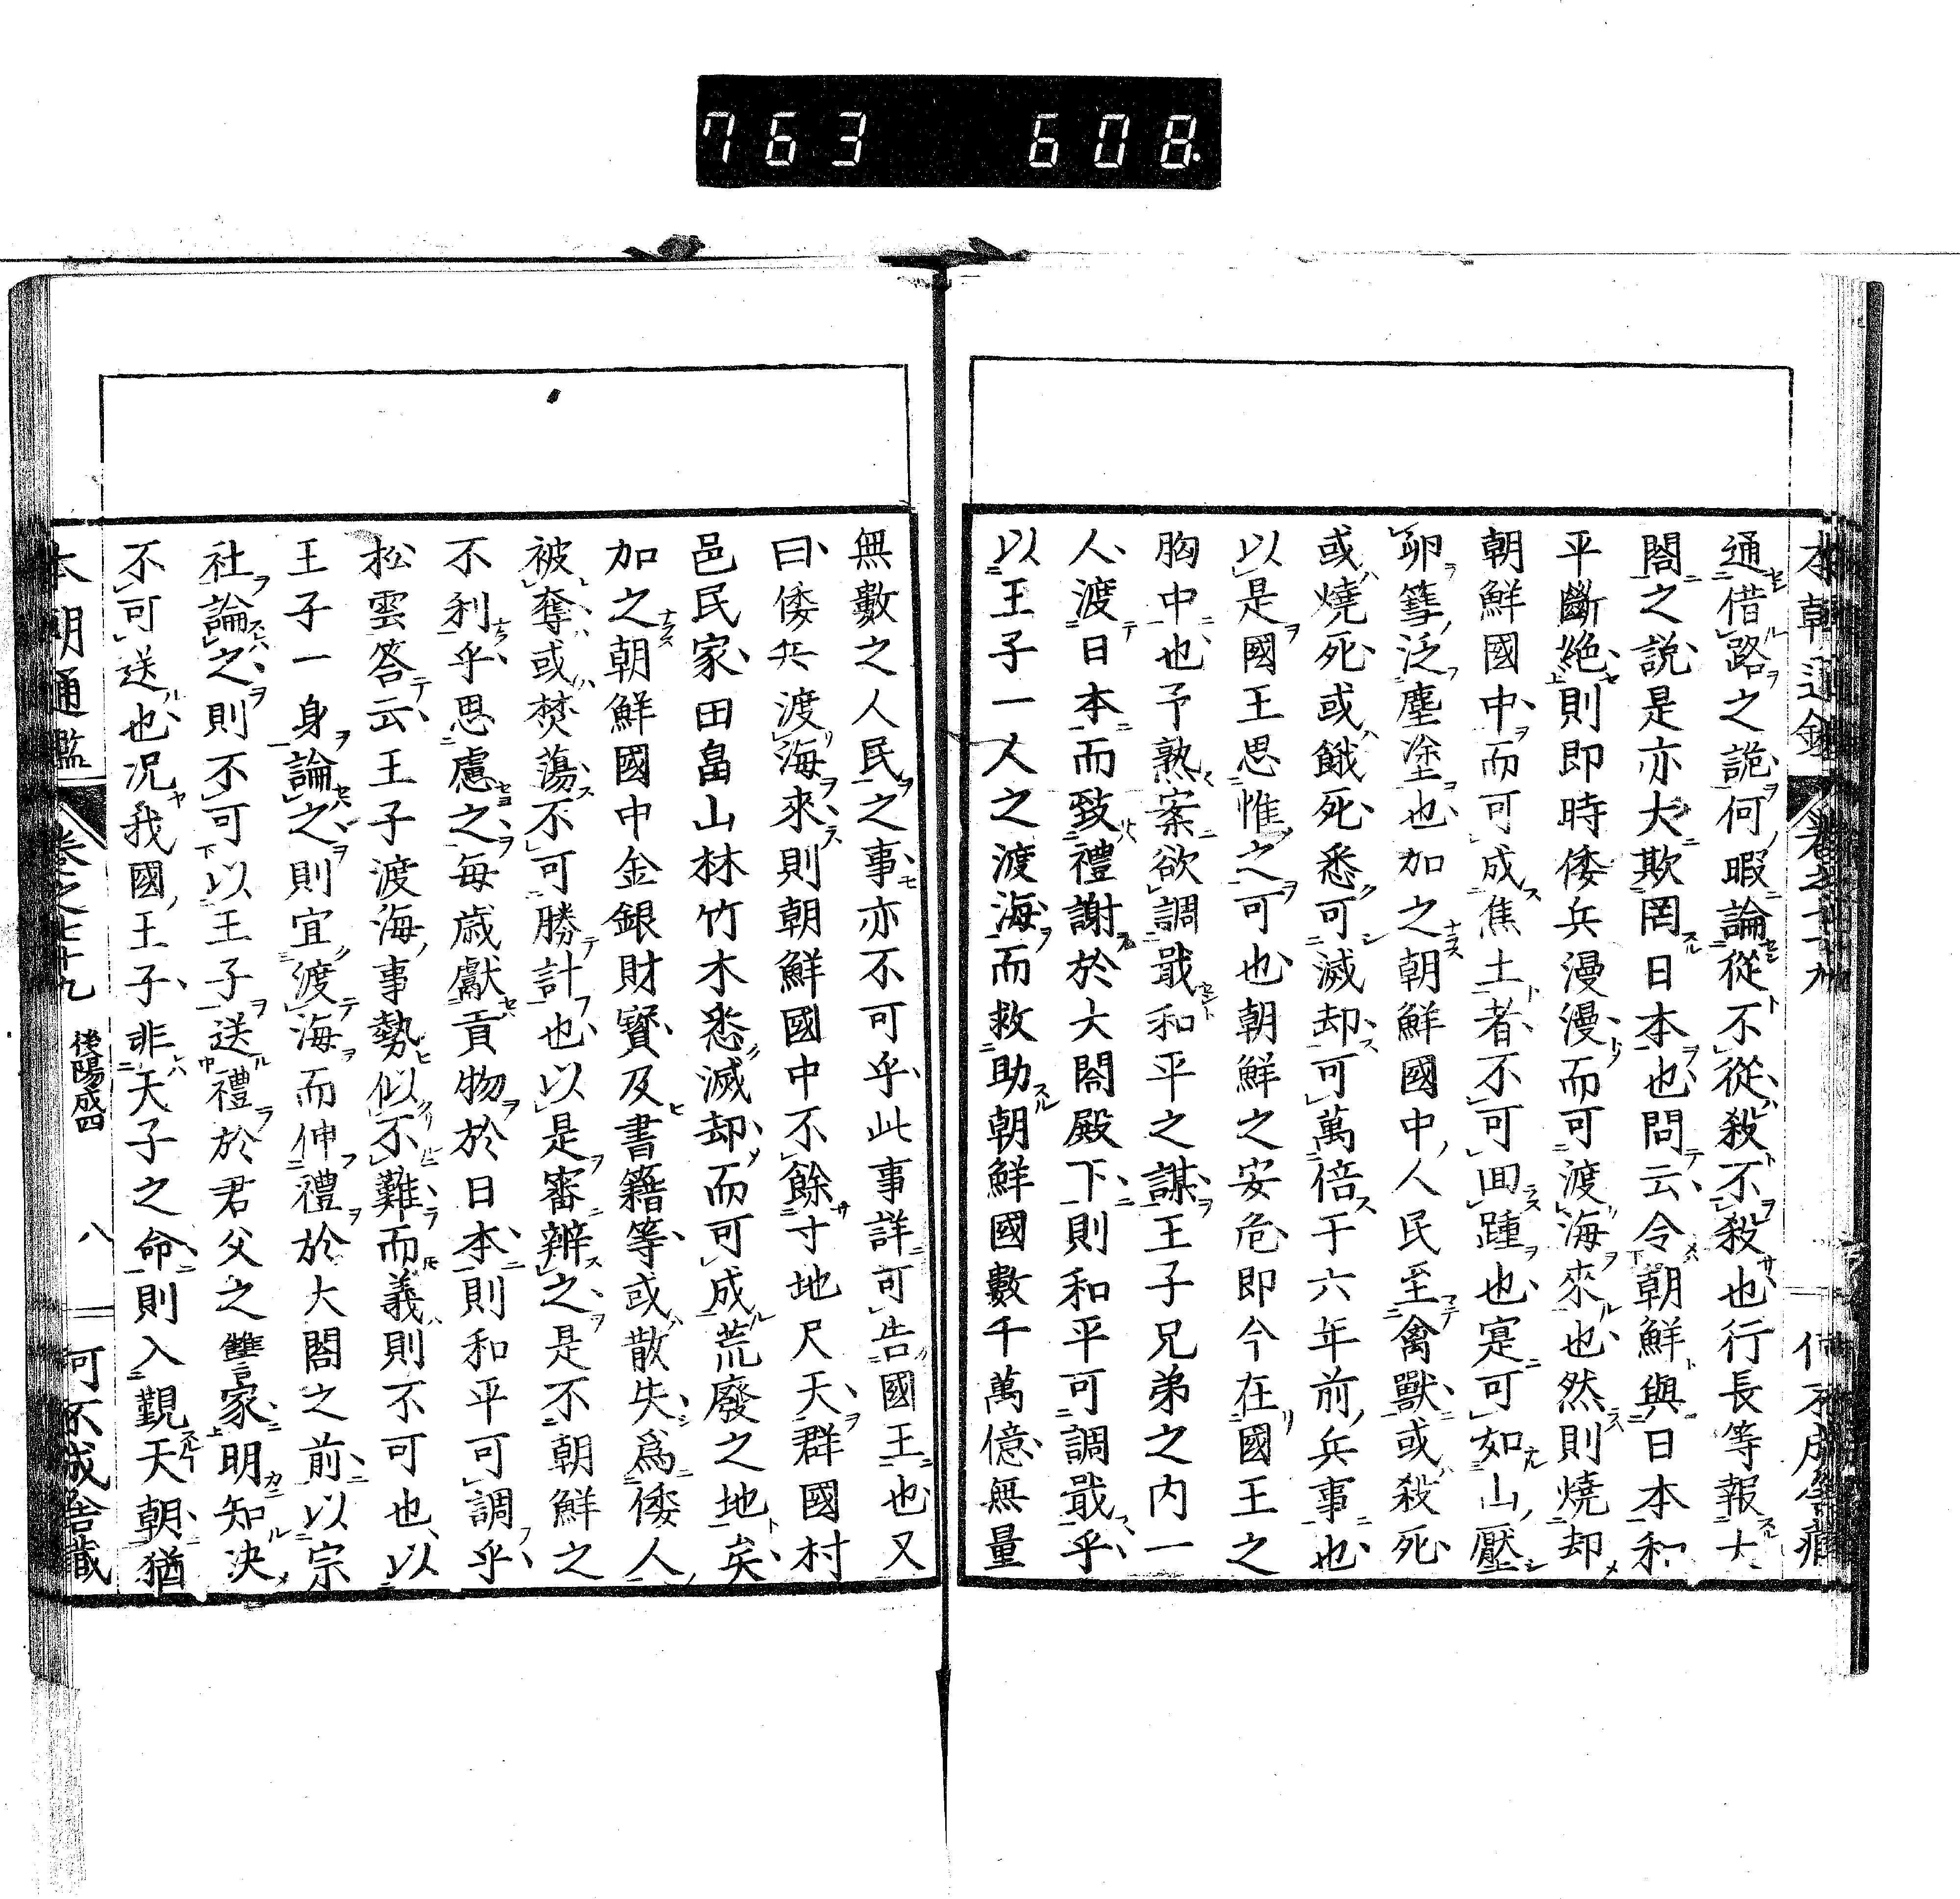 763 608.
通借路之詭何暇論從不從殺不殺也行長等報大
閤之說是亦大欺罔日本也問云令朝鮮與日本和
平斷絶則即時倭兵漫漫而可渡海來也然則燒却
朝鮮國中而可成焦土者不可回踵也寔可如山壓
卵篲泛塵塗也加之朝鮮國中人民至禽獸或殺死
或燒死或餓死悉可滅却可萬倍于六年前兵事也
以是國王思惟之可也朝鮮之安危即今在國王之
胸中也予熟案欲調戢和平之謀王子兄弟之内一
人渡日本而致禮謝於大閤殿下則和平可調戢乎
以王子一人之渡海而救助朝鮮國數千萬億無量
無數之人民之事亦不可乎此事詳可告國王也又
曰倭兵渡海來則朝鮮國中不餘寸地尺天群國村
邑民家田畠山林竹木悉滅却而可成荒廢之地矣
加之朝鮮國中金銀財寳及書籍等或散失爲倭人
被奪或焚蕩不可勝計也以是審辨之是不朝鮮之
不利乎思慮之毎歳獻貢物於日本則和平可調乎
松雲答云王子渡海事勢似不難而義則不可也以
王子一身論之則宜渡海而伸禮於大閤之前以宗
社論之則不可以王子送禮於君父之讐家明知決
不可送也况我國王子非天子之命則入覲天朝猶
本朝通鑑 卷之七十九 後陽成四 八 何不成舎藏